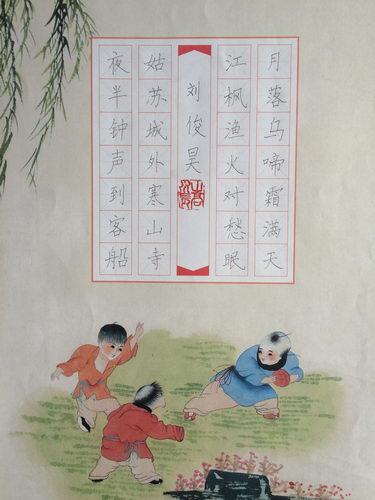 月落乌啼霜满天
江枫渔火对愁眠
刘俊昊
姑苏城外寒山寺
夜半钟声到客船